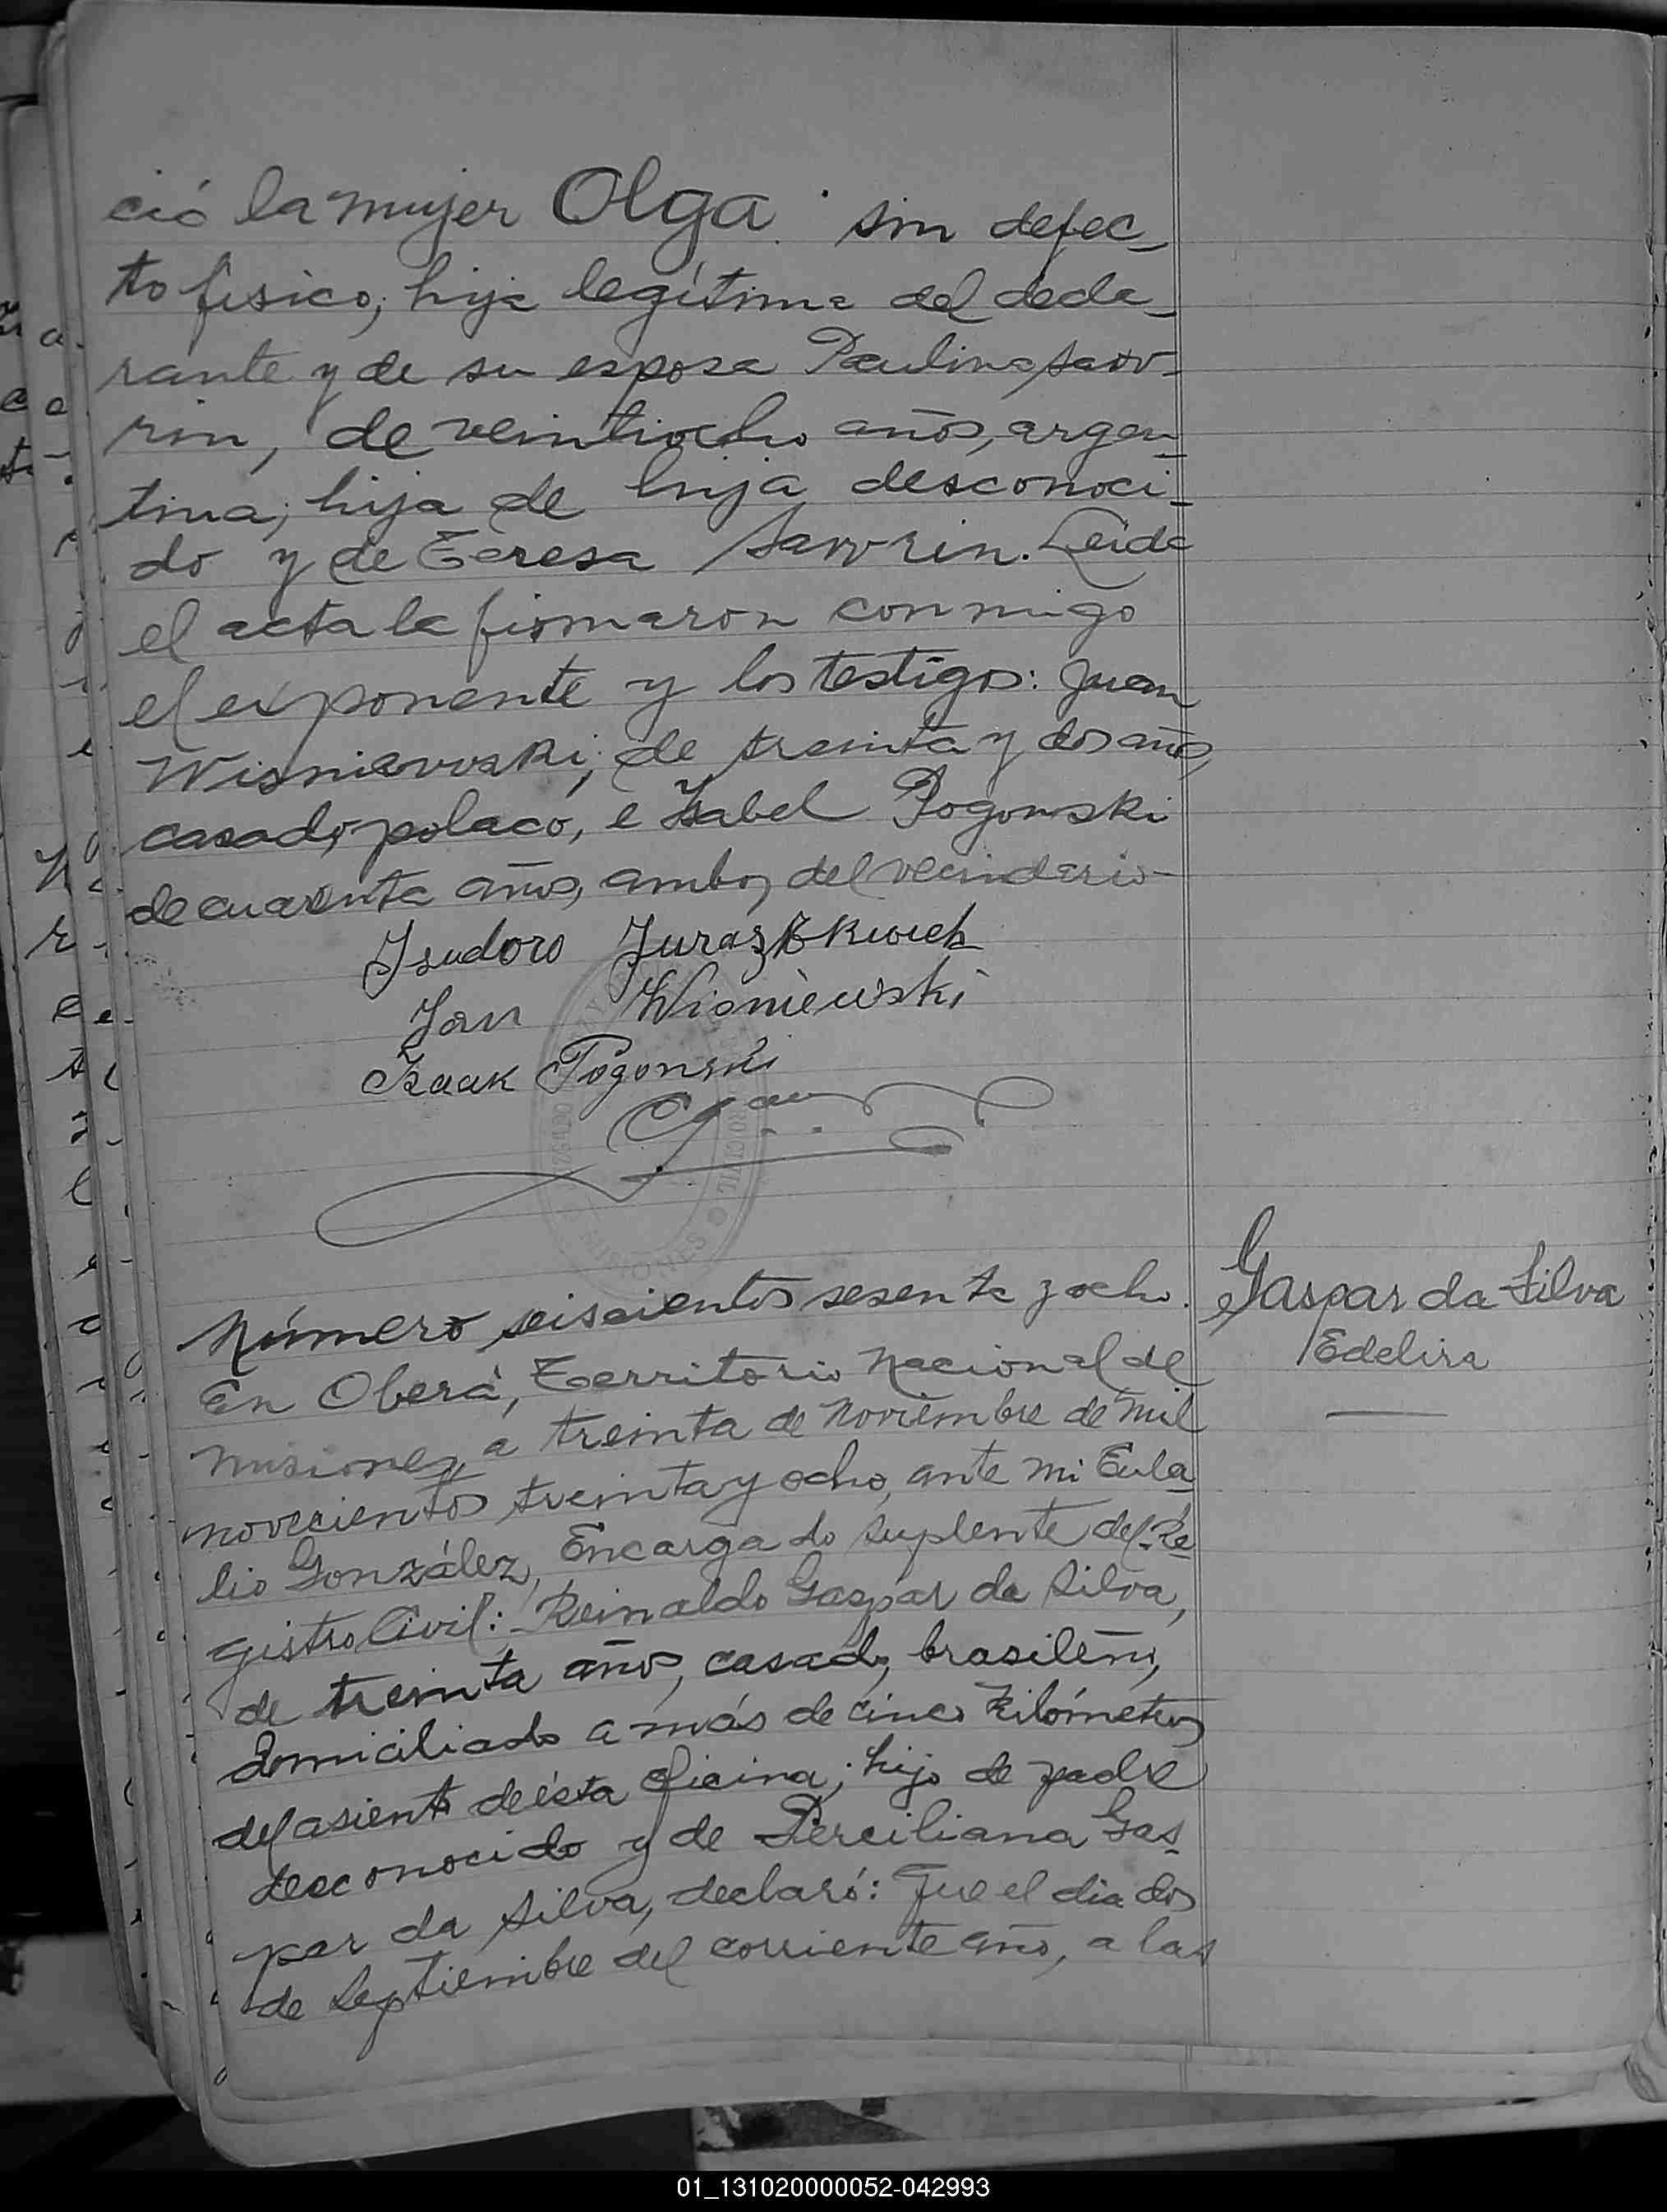 ció la mujer Olga sin defec-
to físico, hija legítima del decla-
rante y de su esposa Paulina Sawr-
rin, de veintiocho años, argen-
tina, hija de hija desconoci-
do y de Teresa Sawrin. Leida
el acta la firmaron conmigo
el exponente y los testigos: Juan
Wisniewski, de treinta y dos años,
casado, polaco, e Isabel Pogonski
de cuarenta años, ambos del vecindario-
Isudoro
Jan Wisniewski
Izaak Pogonski
REGISTRO CIVIL
MISIONES
Número seiscientos sesenta y ocho.
Gaspar da Silva
Edelira
En Oberá, Territorio Nacional de
Misiones, a treinta de Noviembre de mil
novecientos treinta y ocho, ante mi Eula-
lio González, Encargado Suplente del Re-
gistro Civil: Reinaldo Gaspar da Silva,
de treinta años, casado, brasileño,
domiciliado a más de cinco kilómetros
del asiento de ésta oficina; hijo de padre
desconocido y de Perciliana Gas-
par da Silva, declaró: Que el dia dos
de Septiembre del corriente año, a las
01_131020000052-042993